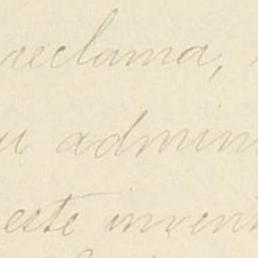 reclama,
u admin
este invent